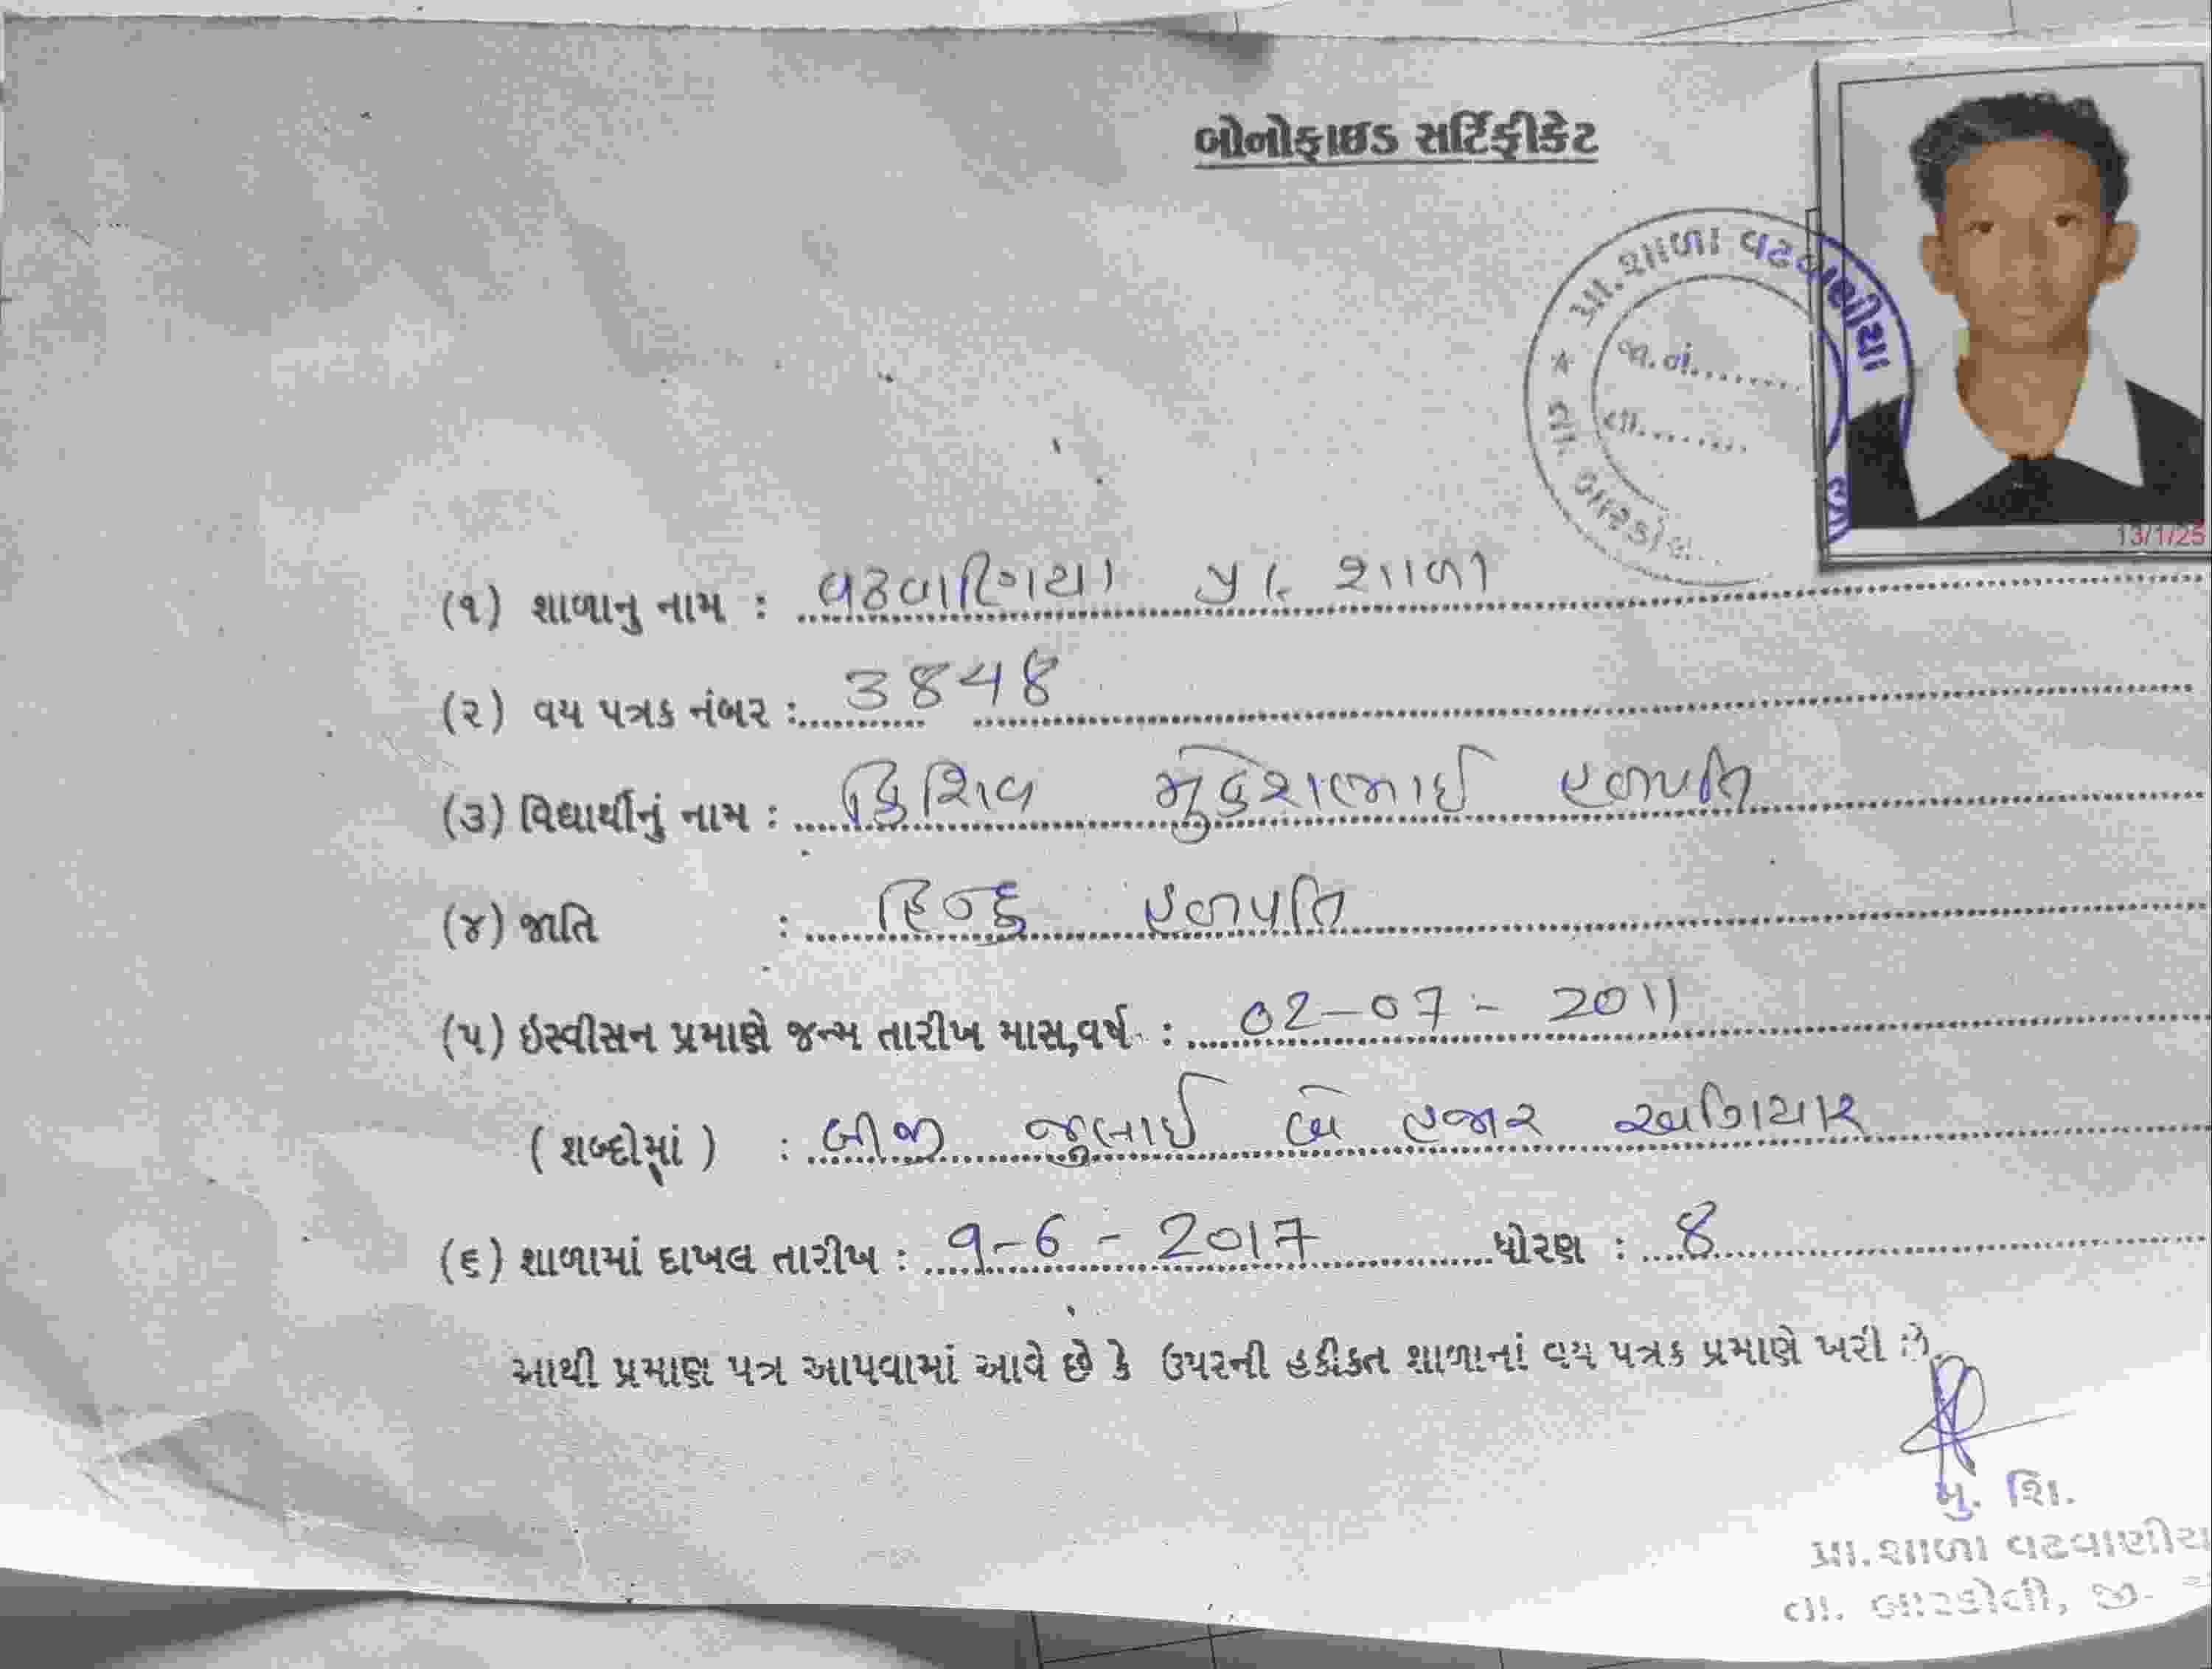 બોનોફાઇડ સર્ટિફીકેટ
પ્રા.શાળા વઢવાણીયા
જા.નં.........
તા.........
* તા બારડોલી.
13/1/25
(૧) શાળાનુ નામ : વઢવાણિયા પ્રા. શાળા
(૨) વય પત્રક નંબર : 3848
(૩) વિદ્યાર્થીનું નામ : ક્રિશિવ મુકેશભાઈ હળપતિ
(૪) જાતિ : હિન્દુ હળપતિ
(૫) ઇસ્વીસન પ્રમાણે જન્મ તારીખ માસ,વર્ષ : 02-07-2011
( શબ્દોમાં ) : બીજી જુલાઈ બે હજાર અગિયાર
(૬) શાળામાં દાખલ તારીખ : 9-6-2017 ધોરણ : 8
આથી પ્રમાણ પત્ર આપવામાં આવે છે કે ઉપરની હકીકત શાળાનાં વય પત્રક પ્રમાણે ખરી છે.
મુ. શિ.
પ્રા.શાળા વઢવાણીયા
તા. બારડોલી, જી.